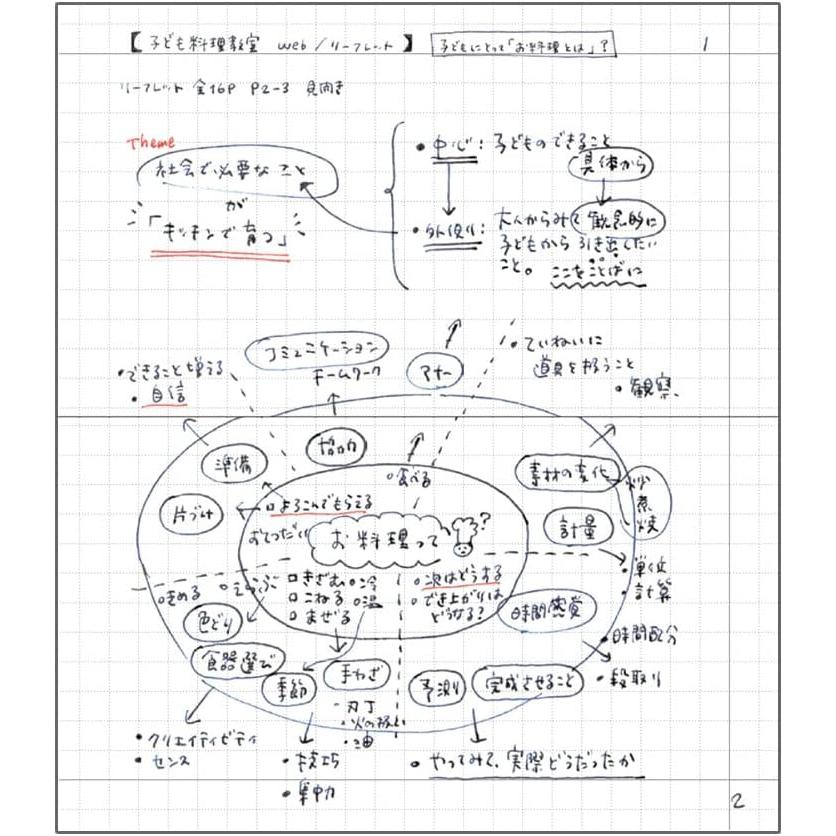 【子ども料理教室 web/リーフレット】 子どもにとって「お料理とは」? 1
リーフレット 全16P P2-3 見開き
Theme
社会で必要なこと
が
「キッチンで育つ」
・中心: 子どものできること
具体から
・外側: 大人からみて観念的に
子どもから引き出したい
こと。 ここをことばに
コミュニケーション
チームワーク
マナー
・ていねいに
道具を扱うこと
・観察
・できること増える
・自信
準備
協力
食べる
素材の変化
炒
煮
焼
片づけ
よろこんでもらえる
おてつだい
お料理って
?
計量
・単位
・計算
えらぶ
きざむ
冷
こねる
温
まぜる
次はどうする
でき上がりは
どうなる?
時間感覚
・時間配分
・段取り
色どり
食器選び
季節
手わざ
・刃丁
・火の扱い
・油
予測
完成させること
・クリエイティビティ
・センス
・技巧
・集中力
・やってみて、実際どうだったか
2